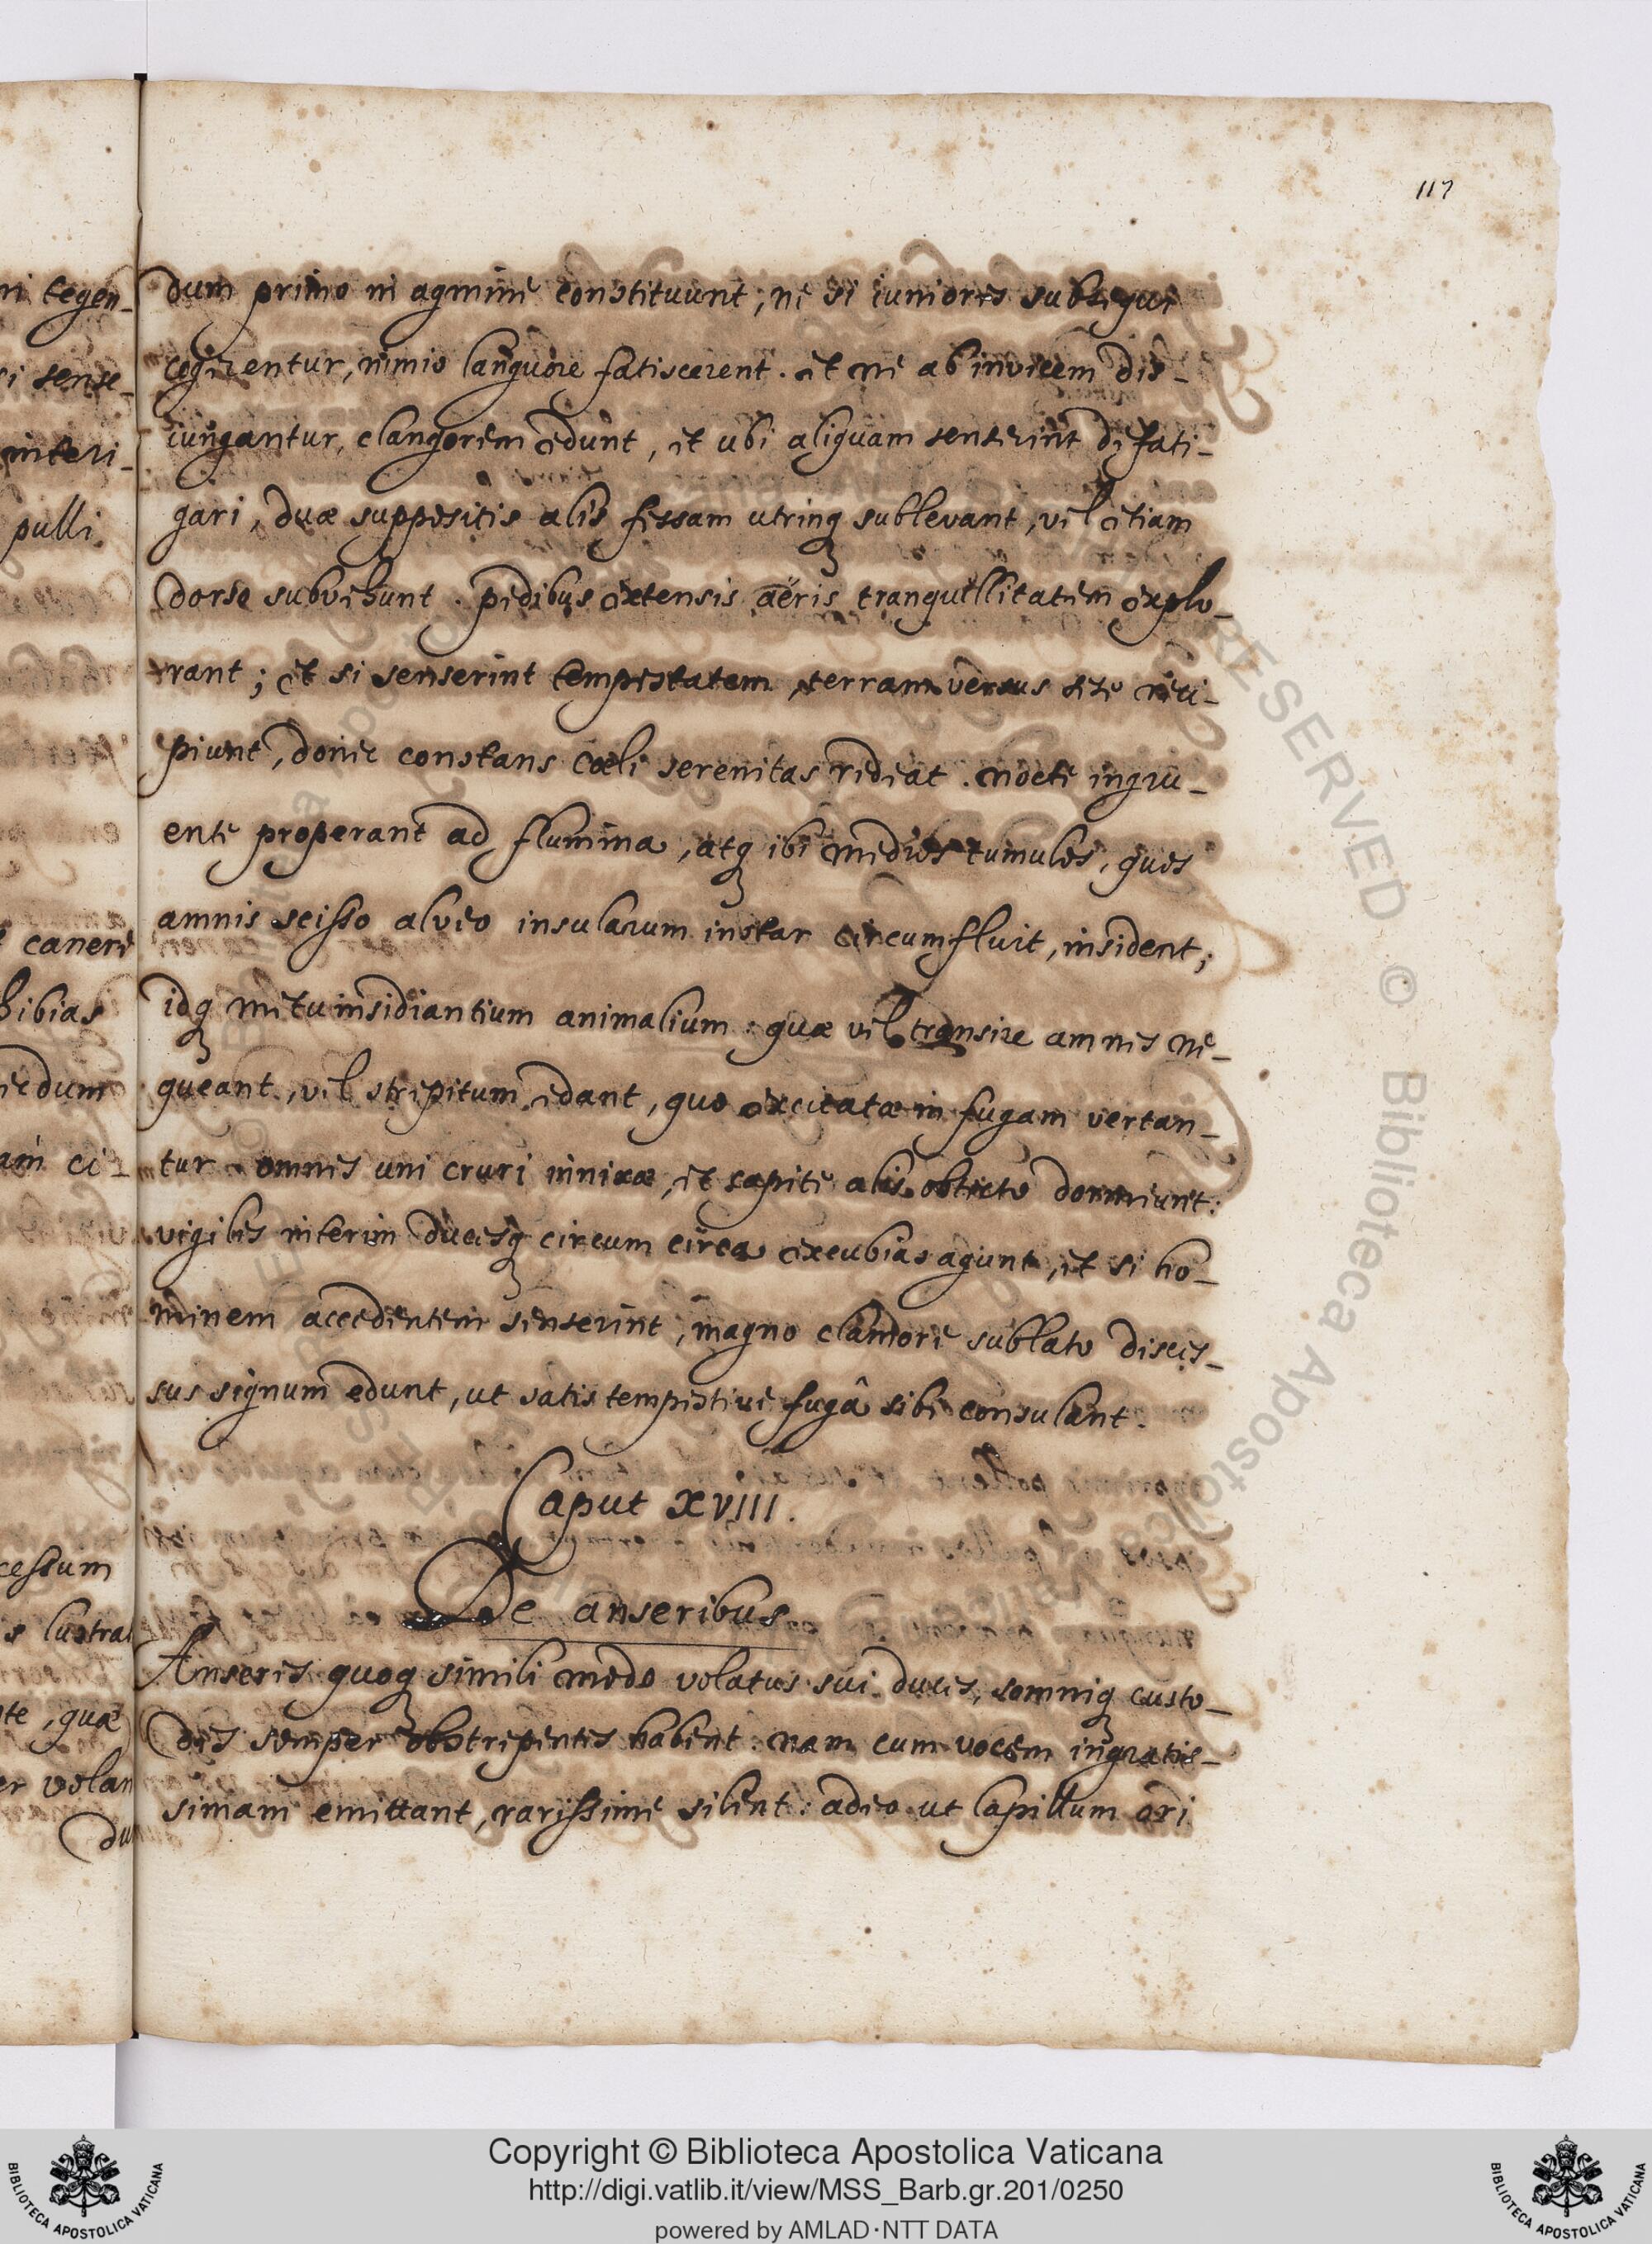 117
dum primo in agmine constituunt; ne si iuniores subsequi
cogerentur, nimio languore fatiscerent. et ne ab invicem dis-
iungantur, clangorem edunt, et ubi aliquam senserint defati-
gari, duæ suppositis alis fessam utrinq sublevant, vel etiam
dorso subvehunt. pedibus extensis aëris tranquillitatem explo-
rant; et si senserint tempestatem, terram versus sese reci-
piunt, donec constans cœli serenitas redeat. nocte ingru-
ente properant ad flumina, atq ibi medios tumulos, quos
amnis scisso alveo insularum instar circumfluit, insident;
idq metu insidiantium animalium: quæ vel transire amnes ne-
queant, vel strepitum edant, quo excitatæ in fugam vertan-
tur. omnes uni cruri innixæ, et capite alis obtecto dormiunt:
vigiles interim ducesq circum circa excubias agunt, et si ho-
minem accedentem senserint, magno clamore sublato disces-
sus signum edunt, ut satis tempestive fugâ sibi consulant.
Caput XVIII.
De anseribus.
Anseres quoq simili modo volatus sui duces, somniq custo-
des semper obstrepentes habent. nam cum vocem ingratis-
simam emittant, rarissime silent: adeo ut lapillum ori
ni tegen-
si sense-
interi-
pulli.
canere
hibias
dum
am ci-
cessum
s lustra
te, quæ
er volan
du
RESERVED © Biblioteca Apostolica
Copyright © Biblioteca Apostolica Vaticana
http://digi.vatlib.it/view/MSS_Barb.gr.201/0250
powered by AMLAD·NTT DATA
BIBLIOTECA APOSTOLICA VATICANA
BIBLIOTECA APOSTOLICA VATICANA